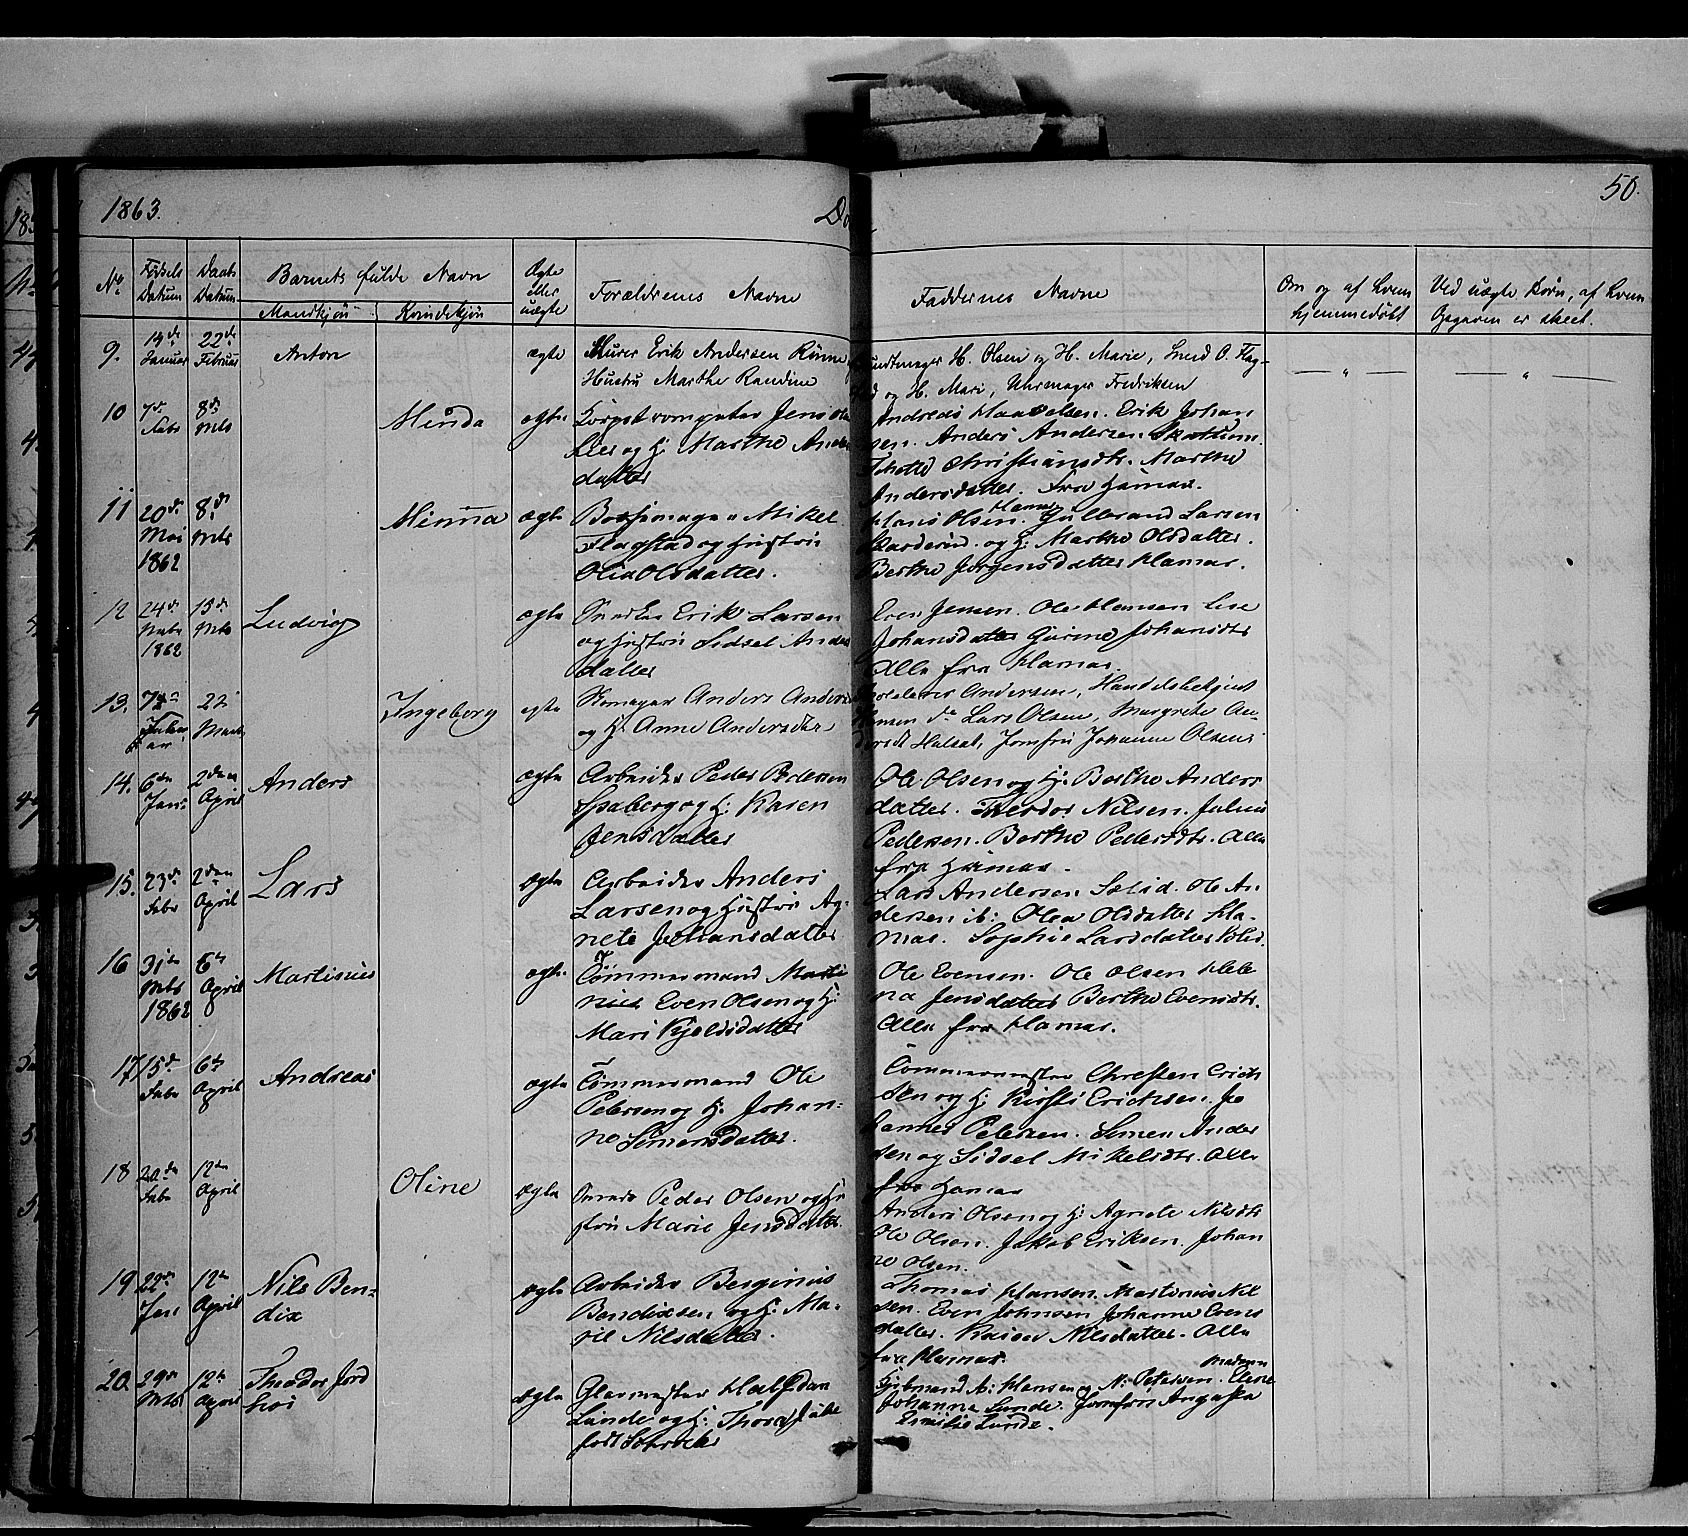 1863.
50.
No
Fødsels Datum
Daabs Datum
Barnets fulde Navn
Mandkjøn
Kvindekjøn
Ægte eller uægte
Forældrenes Navne
Faddernes Navne
Om og af hvem hjemmedøbt
Ved uægte Børn, af hvem Opgaven er skeet.
9. 14de Januar 22de Februar Anton ægte Murer Erik Andersen Rønne
Hustru Marthe Randine
H. Olsen og H. Marie, Smed O. Flag-
stad og H. Mari, Uhrmager Fredriksen
10 7de Febr 8de Mts Minda ægte Jens
Lier og H: Marthe Anders
datter
Andreas Erik Johan
sen. Anders Andersen Skattum.
Christiansdtr. Marthe
Andersdatter. Fra Hamar.
11 20de Mai 1862 8de Mts Minna ægte Bøssemager Mikel
Flagstad og Hustru
Olia Olsdatter.
Hans Olsen Hamar. Gulbrand Larsen
og H: Marthe Olsdatter.
Berthe Jørgensdatter Hamar.
12 24de 1862 15de Mts Ludvig ægte Snedker Erik Larsen
og Hustru Sidsel Anders
datter
Even Jensen. Ole Hansen Lise
Johansdatter Gurine Johansdtr
Alle fra Hamar.
13. Januar Marts Ingeborg ægte Skomager Anders Andersen
og H: Anne Andersdtr
Andersen, Handelsbetjent
Hansen do Lars Olsen, Margrethe An-
dersdt Hulsat, Jomfru Johanne Olsen
14. 6te Janr 2den April Anders ægte Arbeider Peder Pedersen
Spaberg og H: Karen
Jensdatter
Ole Olsen og H: Berthe Anders
datter. Theodor Nilsen. Julius
Pedersen. Berthe Pedersdtr. Alle
fra Hamar.
15. 23de Febr 2den April Lars ægte Arbeider Anders
Larsen og Hustru Ag-
nete Johansdatter
Lars Andersen Ole An
dersen ib: Olea Olsdatter Ha-
mar. Sophie Larsdatter
16 31te Mts 1862 6te April Martinius ægte Tømmermand
Even Olsen og H:
Mari Kjeldsdatter
Ole Evensen. Ole Olsen Hele
na Jensdatter Berthe Evensdtr.
Alle fra Hamar.
17 15de Febr 6te April Andreas ægte Tømmermand Ole
Petersen og H. Johan-
ne Simensdatter.
Tømmermester Christen Erich
sen og H: Kirsti Erichsen. Jo
hannes Petersen. Simen Ander
sen og Sidsel Mikelsdtr. Alle
fra Hamar
18 20de Febr 12te April Oline ægte Smed Peder Olsen og Hu
stru Marie Jensdatter.
Anders Olsen og H: Agnete Nilsdtr
Ole Olsen. Jakob Eriksen. Johan
ne Olsen.
19 22de Jan 12te April Nils Ben-
dix ægte Arbeider Berginius
Bendixsen og H: Ma-
rie Nilsdatter.
Thomas Hansen. Martinius Nil
sen. Even Johnsen Johanne Evens
datter. Karen Nilsdatter. Alle
fra Hamar.
20. 29de Mts 12te April Theodor ægte Glarmester Halfdan
Lunde og H:
født
Kjøbmand A: Hansen og N: Petersen. Madam Elene
Johanna Lunde. Jomfru
Emilie Lunde.